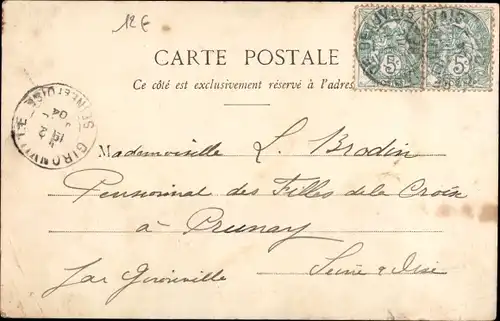 12€
CARTE POSTALE
Ce côté est exclusivement réservé à l'adres
5c 5c
GIRONVILLE
SEINE ET OISE
04
Mademoiselle L. Brodin
Pensionnat des Filles de la Croix
à Prunay
par Gironville Seine & Oise